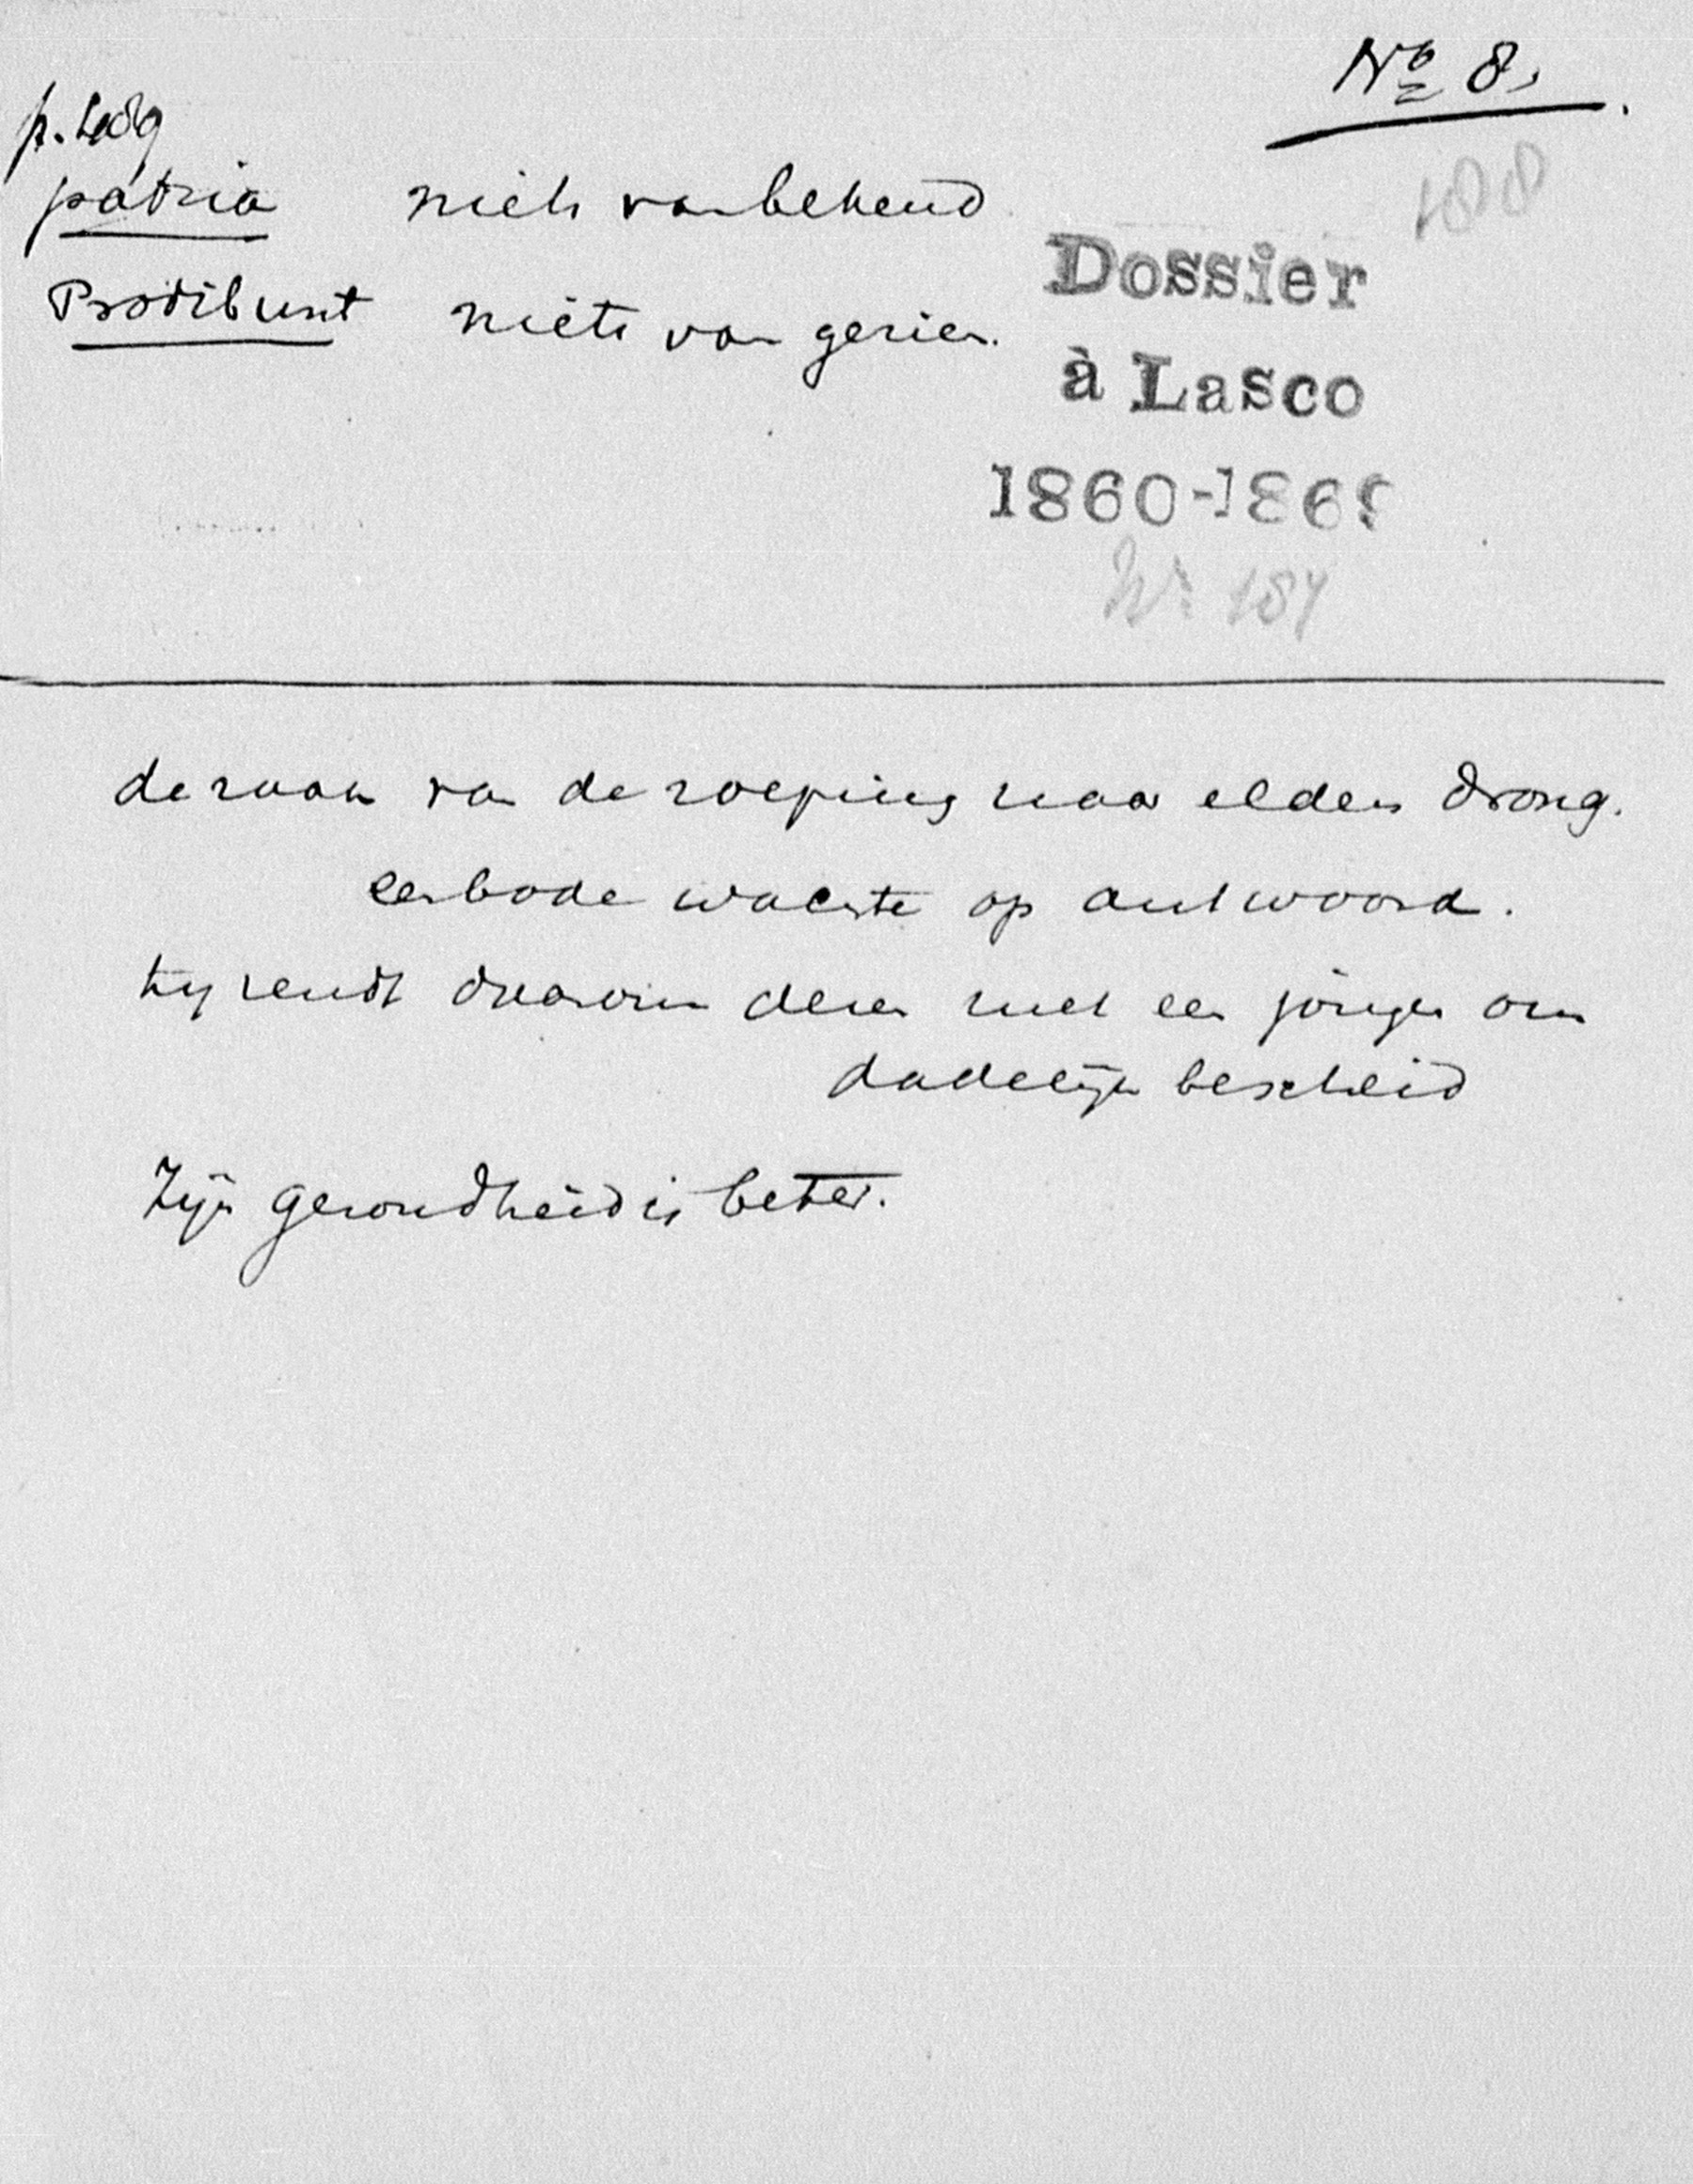 No 8.
p. 489
patria niets van bekend
188
Prodibunt niets van gezien.
Dossier
à Lasco
1860-1869
No 184
de zaak van de roeping naar elders drong.
een bode wachtte op antwoord.
hij zendt daarom dezen met een jongen om
dadelijk bescheid
Zijn gezondheid is beter.